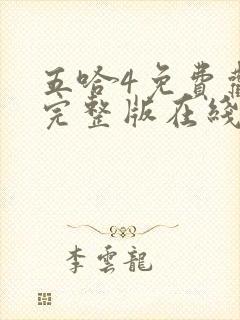 五哈4免费
完整版在线
李雲龍